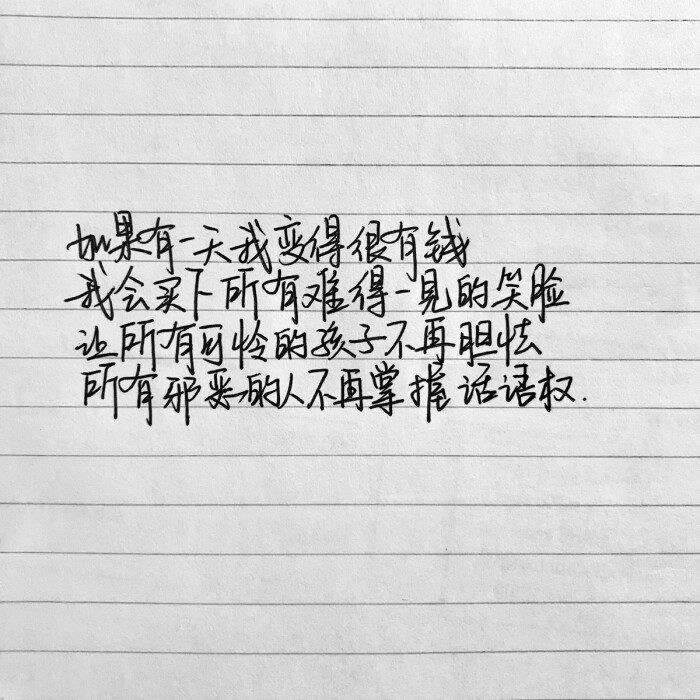 如果有一天我变得很有钱
我会买下所有难得一见的笑脸
让所有可怜的孩子不再胆怯
所有邪恶的人不再掌握话语权.